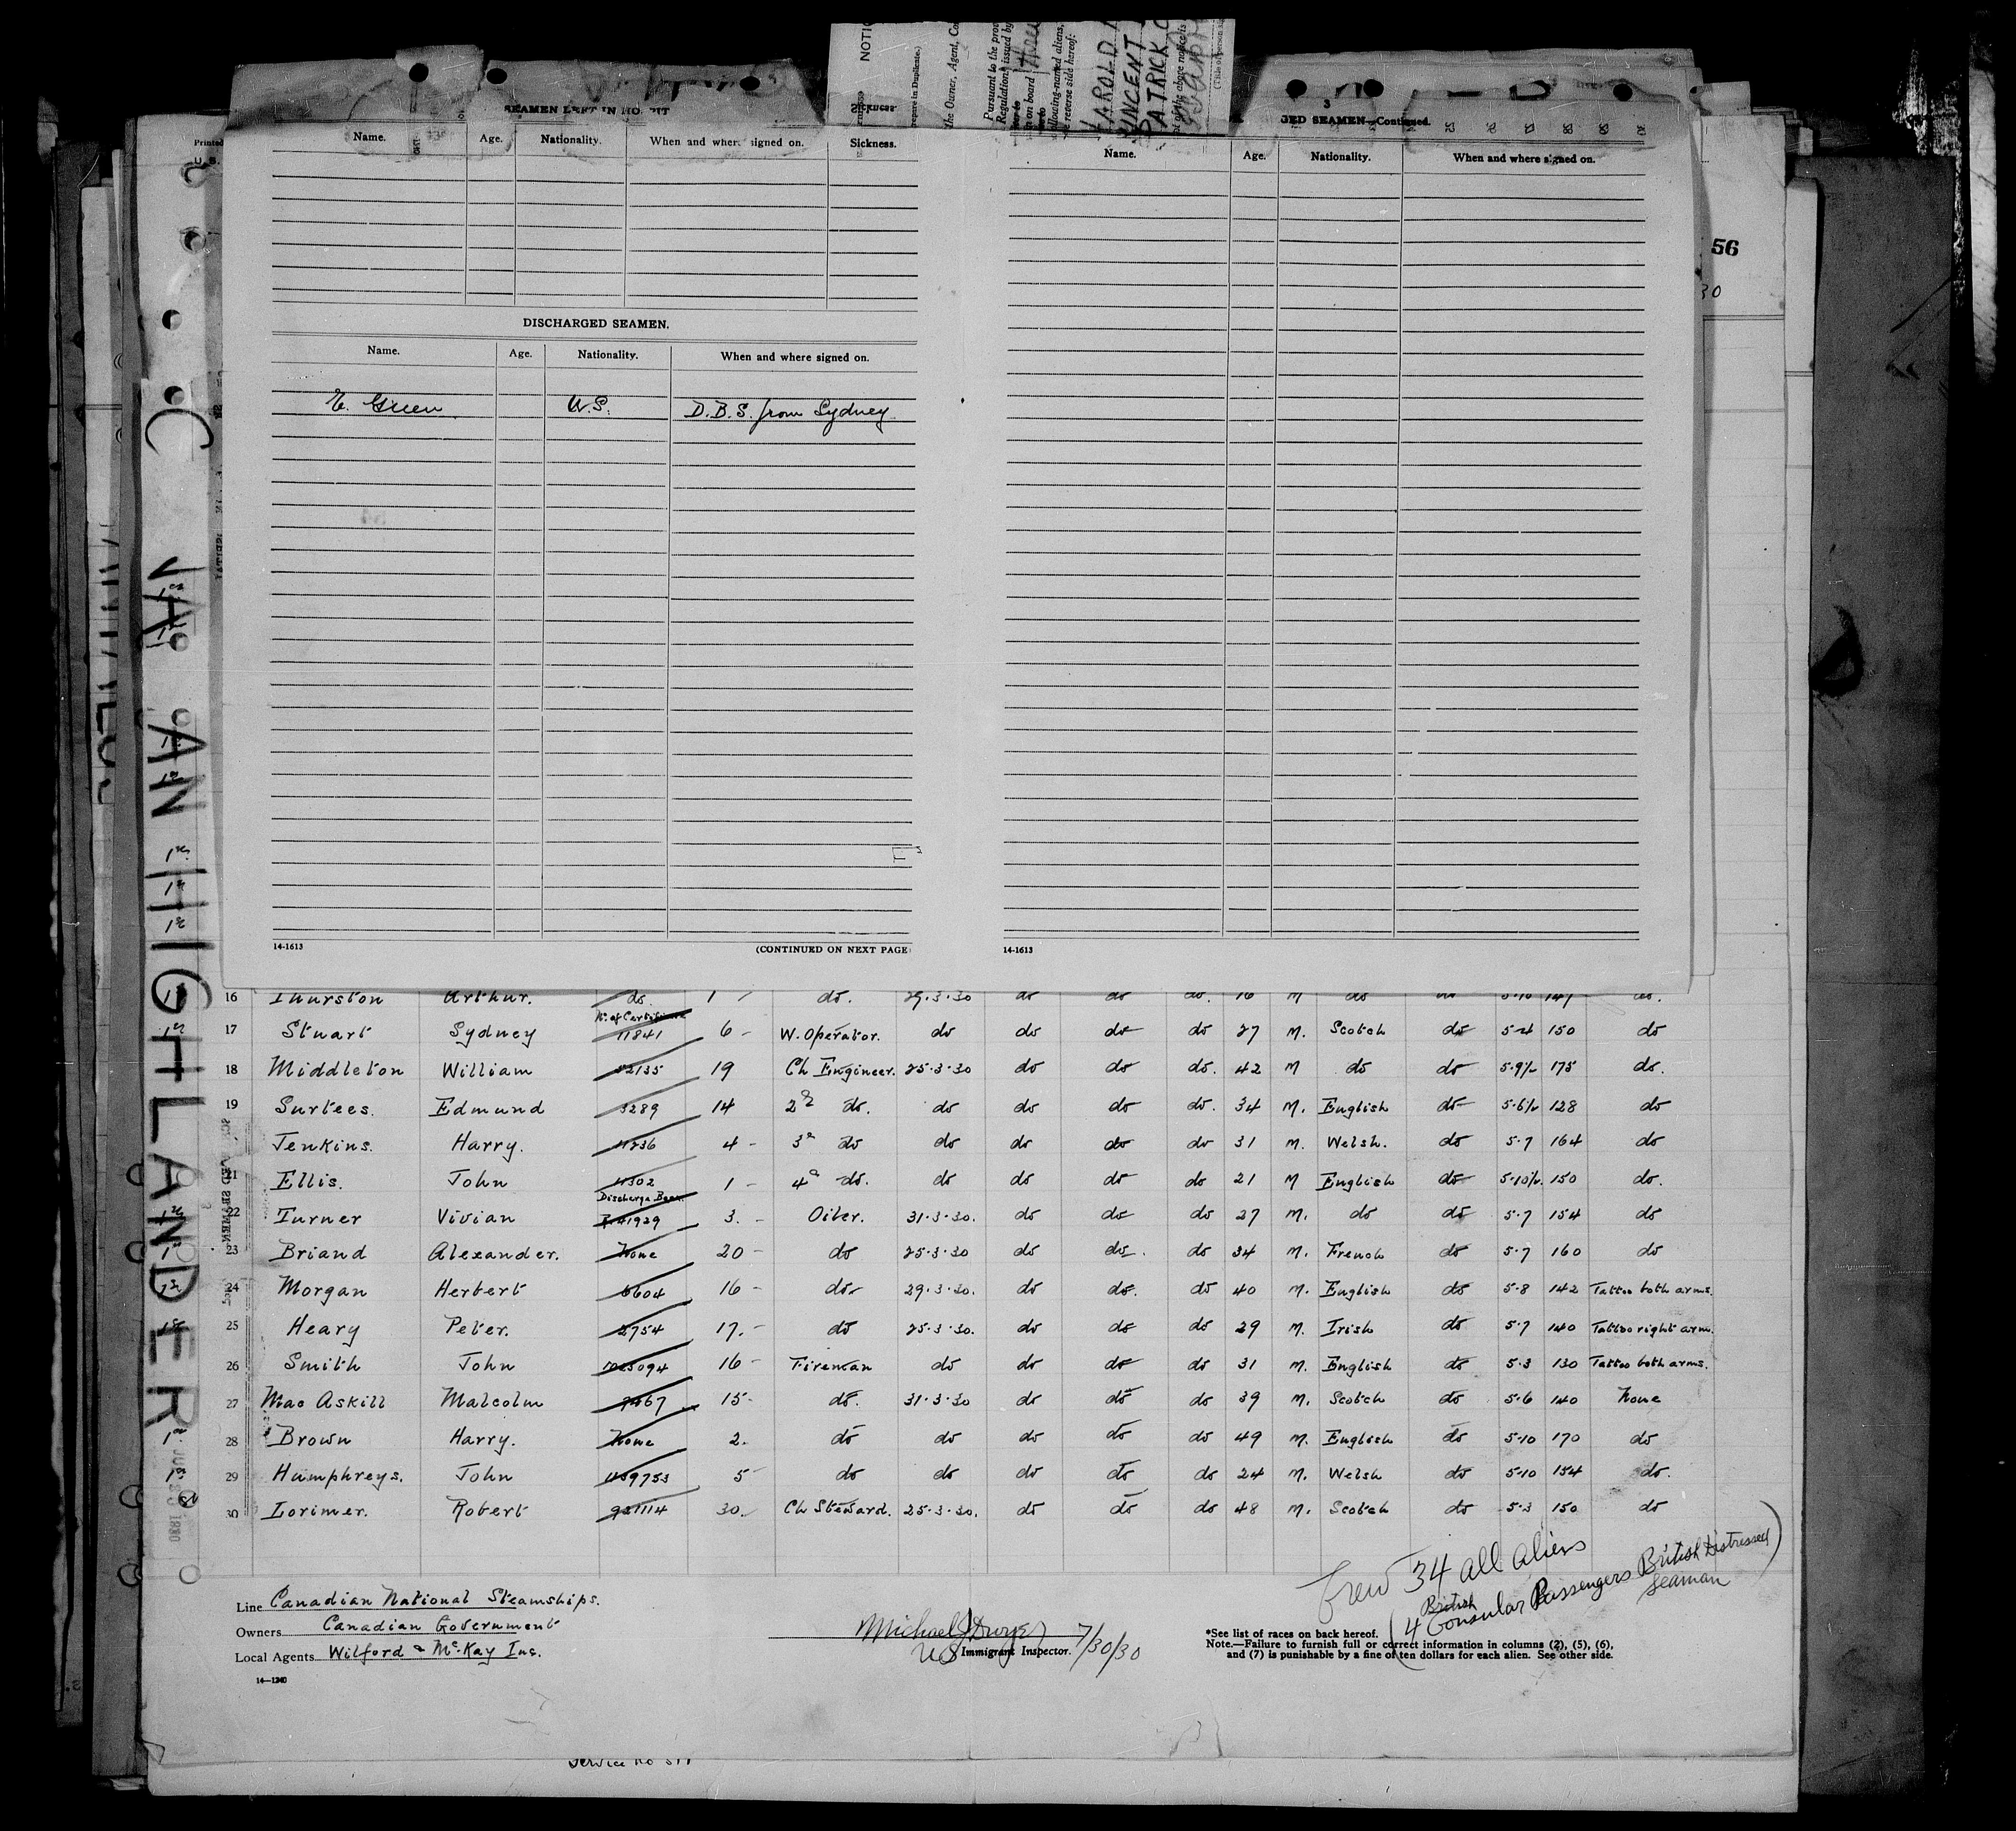 NOTIC
Pursuant to the prov
Regulations issued by
in on board three
following-named aliens,
the Owner, Agent, Co
HAROLD
VINCENT
PATRICK
SEAMEN LEFT IN HO PIT
Name. Age. Nationality. When and where signed on. Sickness.
DISCHARGED SEAMEN.
Name. Age. Nationality. When and where signed on.
E. Green U.S. D.B.S. from Sydney
14-1613 (CONTINUED ON NEXT PAGE
3
GED SEAMEN—Continued.
Name. Age. Nationality. When and where signed on.
14-1613
56
30
Printed
U.S.
CANADIAN HIGHLANDER
16 Thurston Arthur. do. 1 - do. 29.3.30 do do do. 16 M do do 5-10 147 do.
No. of Certificate
17 Stuart Sydney 11841 6 - W. Operator. do do do do 27 M. Scotch do 5-4 150 do
18 Middleton William 52135 19 Ch Engineer. 25.3.30 do do do. 42 M do do 5-9½ 175 do.
19 Surtees. Edmund 3289 14 2d do. do do do do. 34 M. English do 5-6½ 128 do
Jenkins. Harry. 11236 4 - 3d do do do do do 31 M. Welsh. do 5-7 164 do
21 Ellis. John 11302 1 - 4th do. do do do do 21 M English do 5-10½ 150 do.
Discharge Book
22 Turner Vivian R41929 3. - Oiler. 31.3.30. do do do 27 M. do do 5-7 154 do
23 Briand Alexander. None 20 - do 25-3-30 do do. do 34 M. French do 5-7 160 do
24 Morgan Herbert 6604 16 - do 29.3.30. do do. do 40 M. English do 5-8 142 Tattoo both arms.
25 Heary Peter. 2754 17. - do 25.3.30. do do do 29 M. Irish do 5-7 140 Tattoo right arm.
26 Smith John 1023094 16 - Fireman do do do do 31 M. English do 5-3 130 Tattoo both arms.
27 Mac Askill Malcolm 9467 15 - do. 31.3.30 do do do 39 M. Scotch do 5-6 140 None
28 Brown Harry. None 2. do do do do do 49 M. English do 5-10 170 do
29 Humphreys. John 1109753 5 - do do do do do 24 M. Welsh do 5-10 154 do.
30 Lorimer. Robert 921114 30. - Ch Steward. 25.3.30. do do do 48 M. Scotch do 5-3 150 do
Crew 34 all aliens
(4 British Consular Passengers British Distressed Seaman)
Line Canadian National Steamships.
Owners Canadian Government
Local Agents Wilford & McKay Inc.
14—1240
Michael J Dwyer 7/30/30
US Immigrant Inspector.
*See list of races on back hereof.
Note.—Failure to furnish full or correct information in columns (2), (5), (6),
and (7) is punishable by a fine of ten dollars for each alien. See other side.